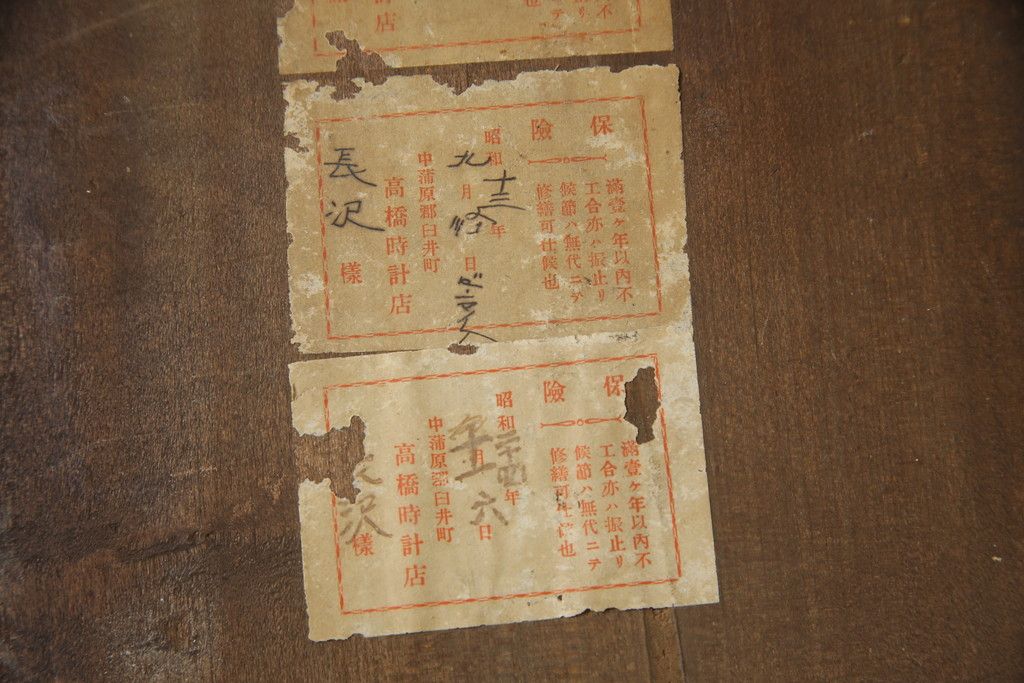 不
店
保險
滿壹ヶ年以内不
工合亦ハ振止リ
候節ハ無代ニテ
修繕可仕候也
昭和十三年
九月 日
中蒲原郡臼井町
高橋時計店
長沢樣
保險
滿壹ヶ年以内不
工合亦ハ振止リ
候節ハ無代ニテ
修繕可仕候也
昭和 年
月六日
中蒲原郡臼井町
高橋時計店
沢樣